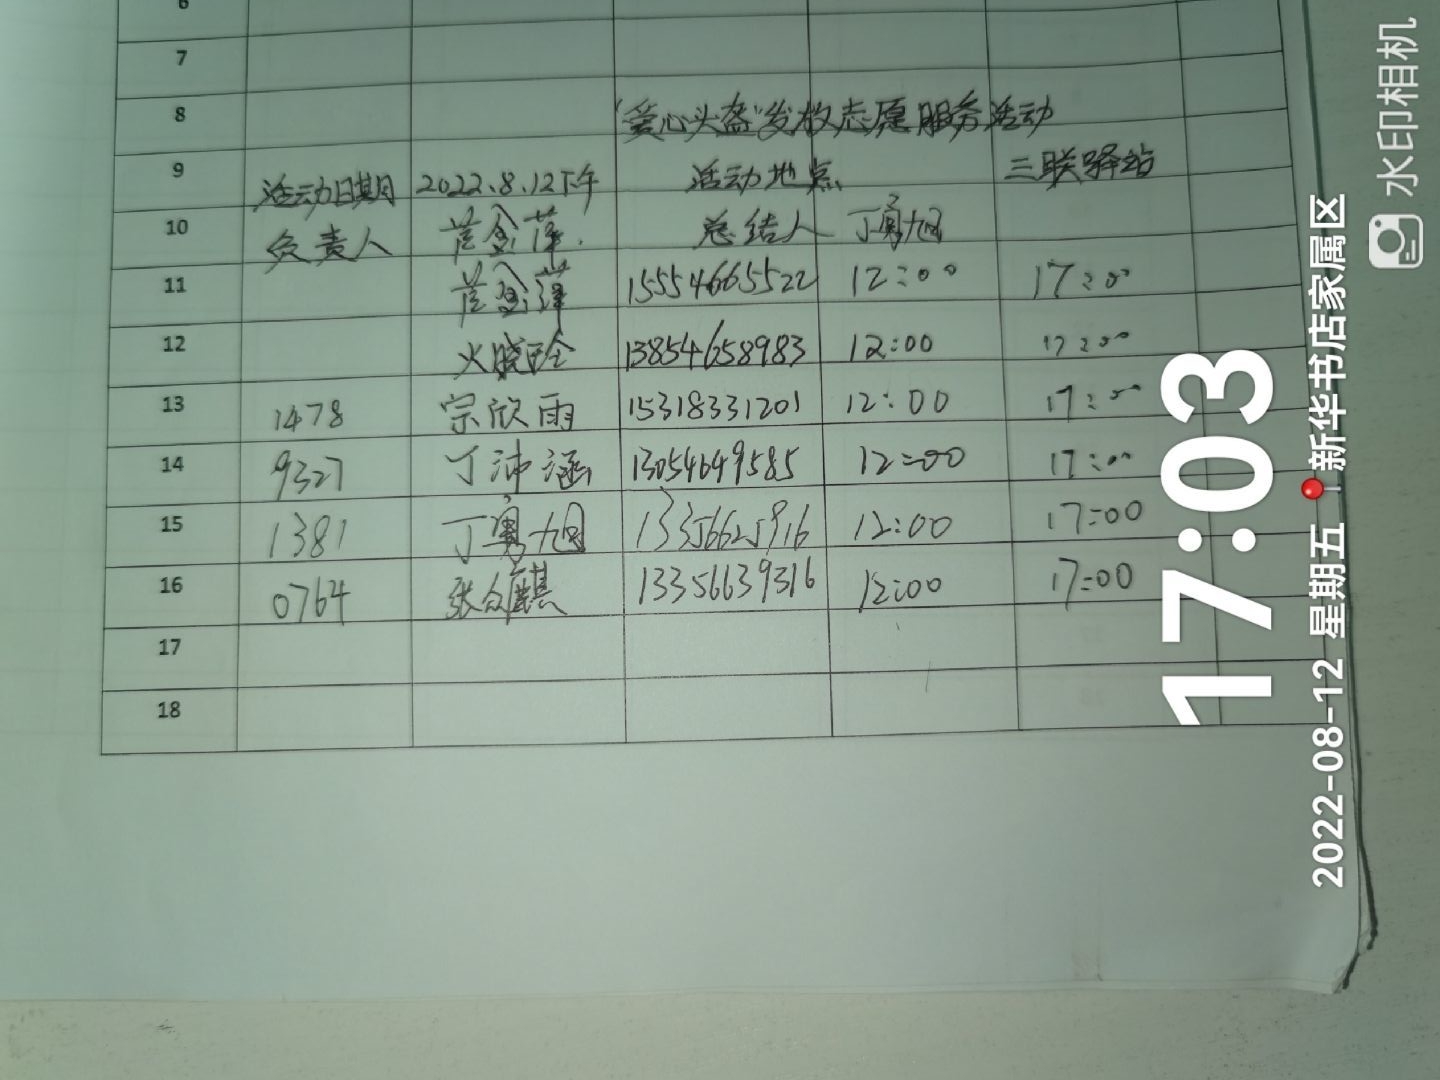 6
7
8 "爱心头盔"发放志愿服务活动
9 活动日期 2022.8.12下午 活动地点 三联驿站
10 负责人 总结人 丁勇旭
11 15554665522 12:00 17:00
12 13854658983 12:00 17:00
13 1478 宗欣雨 15318331201 12:00 17:00
14 9327 丁沛涵 13054649585 12:00 17:00
15 1381 丁勇旭 13356625916 12:00 17:00
16 0764 张众麒 13356639316 12:00 17:00
17
18
17:03
2022-08-12 星期五 新华书店家属区
水印相机